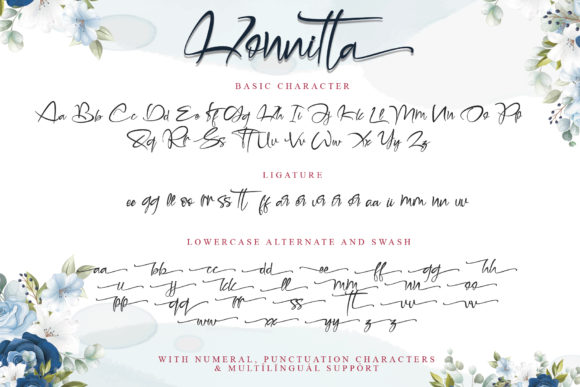 Honnitta
BASIC CHARACTER
Aa Bb Cc Dd Ee Ff Gg Hh Ii Jj Kk Ll Mm Nn Oo Pp
Qq Rr Ss Tt Uu Vv Ww Xx Yy Zz
LIGATURE
ee gg ll oo rr ss tt ff ar er ur ir or aa ii mm nn uv
LOWERCASE ALTERNATE AND SWASH
aa bb cc dd ee ff gg hh
ii jj kk ll mm nn oo
pp qq rr ss tt vv vv
ww xx yy zz
WITH NUMERAL, PUNCTUATION CHARACTERS
& MULTILINGUAL SUPPORT